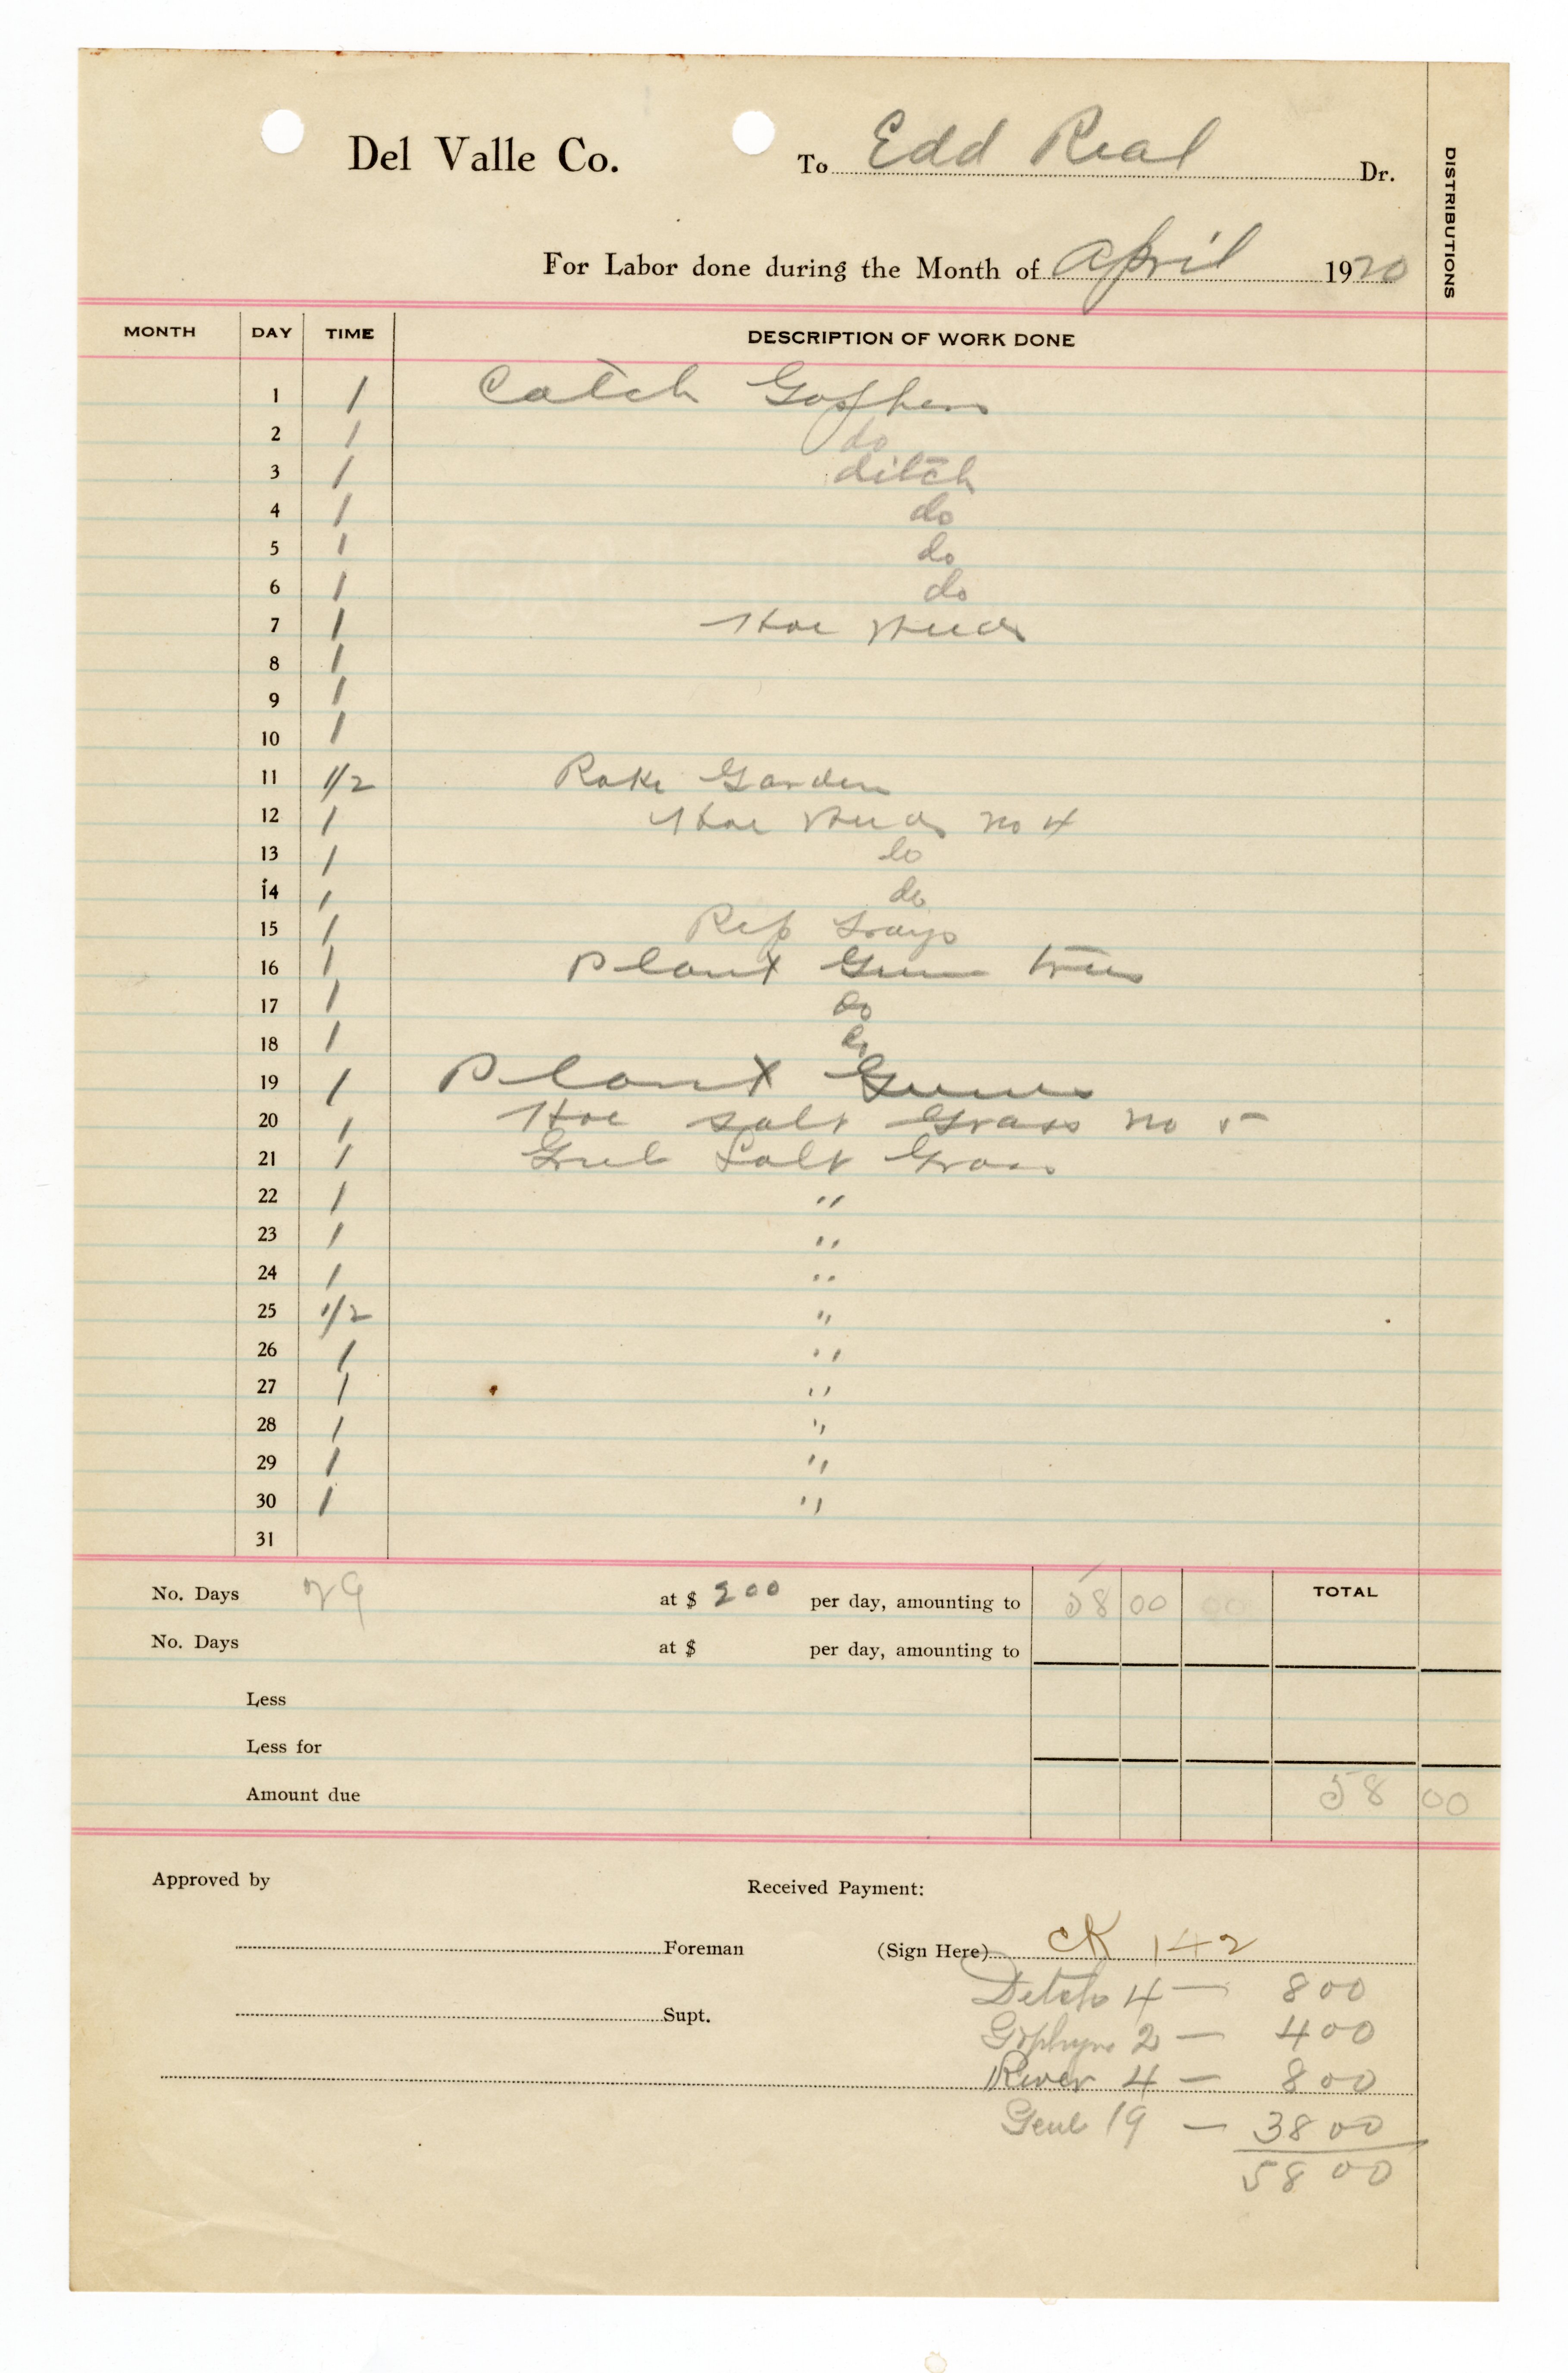 Del Valle Co. To Edd Real Dr.
DISTRIBUTIONS
For Labor done during the Month of April 1920
MONTH DAY TIME DESCRIPTION OF WORK DONE
1 1 Catch Gophers
2 1 do
3 1 ditch
4 1 do
5 1 do
6 1 do
7 1 Hoe Weeds
8 1
9 1
10 1
11 1/2 Rake Garden
12 1 Hoe Weeds no 4
13 1 do
14 1 do
15 1 Rep trays
16 1 Plant Gum trees
17 1 do
18 1 do
19 1 Plant Gums
20 1 Hoe salt Grass no 5
21 1 Grub Salt Grass
22 1 "
23 1 "
24 1 "
25 1/2 "
26 1 "
27 1 "
28 1 "
29 1 "
30 1 "
31
No. Days 29 at $ 2 00 per day, amounting to 58 00 TOTAL
No. Days at $ per day, amounting to
Less
Less for
Amount due 58 00
Approved by Received Payment:
Foreman (Sign Here) CK 142
Ditch 4 — 8 00
Supt.
2 — 4 00
River 4 — 8 00
Genl 19 — 38 00
58 00